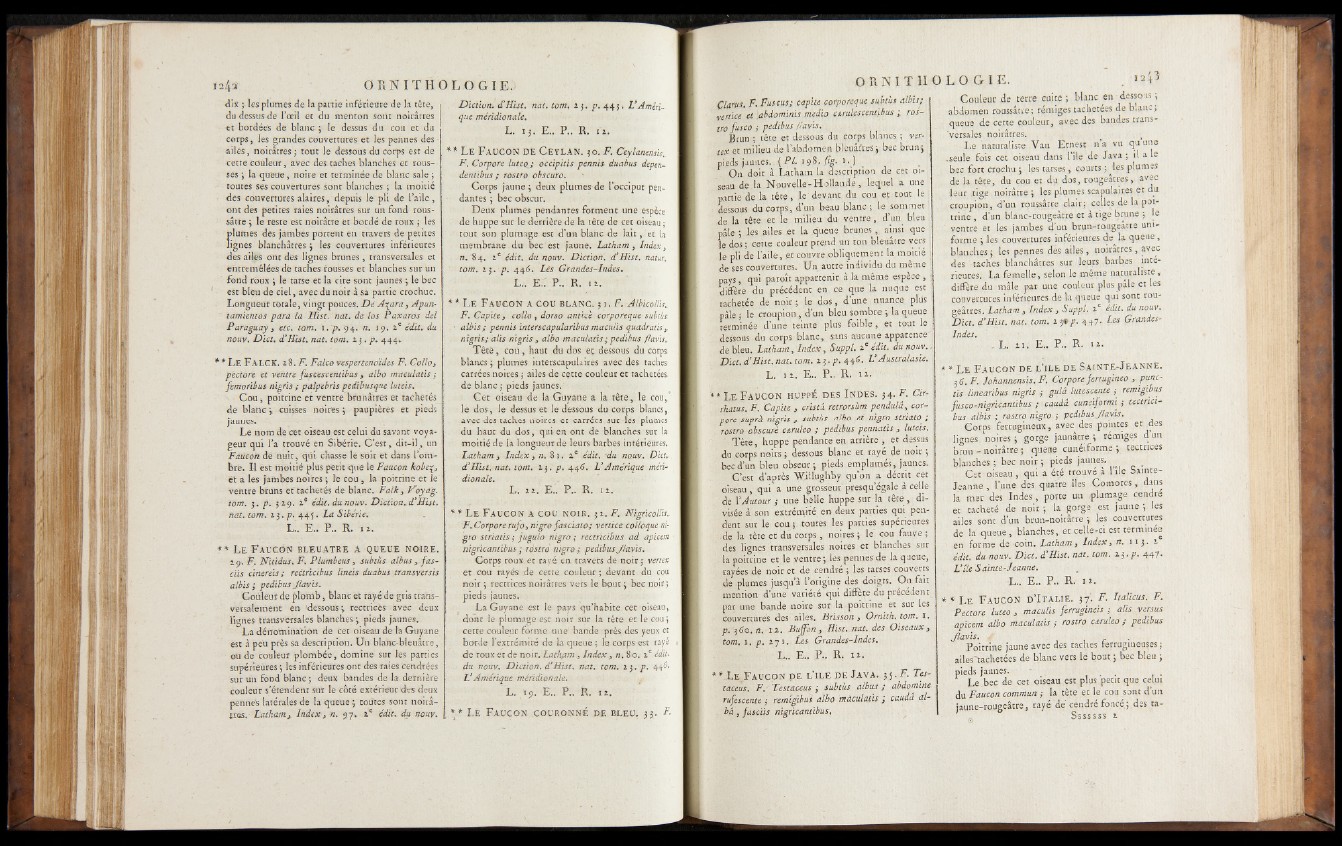 1242 ORNITHOLOGIE.
dix ; les plumes de la partie inférieure de la tête,
du dessus de l'œil et du menton sont noirâtres
et bordées de blanc ; le dessus du cou et du
corps, les grandes couvertures et les pennes des
ailes, noirâtres ; tout le dessous du corps est de
cette couleur, avec des taches blanches et rous-
ses ; la queue, noire et terminée de blanc sale ;
toutes ses couvertures sont blanches ; la moitié
des couvertures alaires, depuis le pli de l'aile,
ont des petites raies noirâtres sur un fond rous-
sâtre ; le reste est noirâtre et bordé de roux ; les
plumes des jambes portent en travers de petites
lignes blanchâtres ; les couvertures inférieures
des ailes ont des lignes brunes, transversales et
entremêlées de taches rousses et blanches sur un
fond roux ; le tarse et la cire sont jaunes ; le bec
est bleu de ciel, avec du noir à sa partie crochue.
Longueur totale, vingt pouces. De Azara, Apun-
tamientos para la Hist. nat. de los Paxaros del
Paraguay, etc. tom. 1. p. 94. n. 19. 2e édit. du
nouv. Dict. d'Hist. nat. tom. 23. p. 444.
** LE FALCK. 28. F. Falco vespertenoides F. Collo,
pectore et ventre fuscescentibus, albo maculatis ;
femoribus nigris ; palpebris pedibusque luteis.
Cou, poitrine et ventre brunâtres et tachetés
de blanc ; cuisses noires ; paupières et pieds
jaunes.
Le nom de cet oiseau est celui du savant voya-
geur qui l'a trouvé en Sibérie. C'est, dit-il, un
Faucon de nuit, qui chasse le soir et dans l'om-
bre. Il est moitié plus petit que le Faucon kobez,
et a les jambes noires ; le cou, la poitrine et le
ventre bruns et tachetés de blanc. Falk, Voyag.
tom. 3. p. 329. 2e édit. du nouv. Diction. d'Hist.
nat. tom. 23. p. 445. La Sibérie.
L.. E.. P.. R. 12.
** LE FAUCON BLEUATRE A QUEUE NOIRE.
29. F. Nitidus. F. Plumbeus, subtùs albus, fas-
ciis cinereis ; rectricibus lineis duabus transversis
albis ; pedibus flavis.
Couleur de plomb, blanc et rayé de gris trans-
versalement en dessous ; rectrices avec deux
lignes transversales blanches ; pieds jaunes.
La dénomination de cet oiseau de la Guyane
est à peu près sa description. Un blanc-bleuâtre,
ou de couleur plombée, domine sur les parties
supérieures ; les inférieures ont des raies cendrées
sur un fond blanc ; deux bandes de la dernière
couleur s'étendent sur le côté extérieur des deux
pennes latérales de la queue ; toutes sont noirâ-
tres. Latham, Index, n. 97. 2e édit. du nouv.
Diction. d'Hist. nat. tom. 23. p. 445. L'Améri-
que méridionale.
L. 13. E.. P.. R. 12.
** LE FAUCON DE CEYLAN. 30. F. Ceylanensis.
F. Corpore luteo ; occipitis pennis duabus depen-
dentibus ; rostro obscuro.
Corps jaune ; deux plumes de l'occiput pen-
dantes ; bec obscur.
Deux plumes pendantes forment une espèce
de huppe sur le derrière de la tête de cet oiseau ;
tout son plumage est d'un blanc de lait, et la
membrane du bec est jaune. Latham, Index,
n. 84. 2e édit. du nouv. Diction. d'Hist. natur.
tom. 23. p. 446. Les Grandes-Indes.
L.. E.. P.. R. 12.
** LE FAUCON A COU BLANC. 31. F. Albicollis.
F. Capite, collo, dorso anticè corporeque subtùs
albis ; pennis interscapularibus maculis quadratis,
nigris ; alis nigris, albo maculatis ; pedibus flavis.
Tête, cou, haut du dos et dessous du corps
blancs ; plumes interscapulaires avec des taches
carrées noires ; ailes de cette couleur et tachetées
de blanc ; pieds jaunes.
Cet oiseau de la Guyane a la tête, le cou,
le dos, le dessus et le dessous du corps blancs,
avec des taches noires et carrées sur les plumes
du haut du dos, qui en ont de blanches sur la
moitié de la longueur de leurs barbes intérieures.
Latham, Index, n. 81. 2e édit. du nouv. Dict.
d'Hist. nat. tom. 23. p. 446. L'Amérique méri-
dionale.
L. 22. E.. P.. R. 12.
** LE FAUCON A COU NOIR. 32. F. Nigricollis.
F. Corpore rufo, nigro fasciato ; vertice colloque ni-
gro striatis ; jugulo nigro ; rectricibus ad apicem
nigricantibus ; rostro nigro ; pedibus flavis.
Corps roux et rayé en travers de noir ; vertex
et cou rayés de cette couleur ; devant du cou
noir ; rectrices noirâtres vers le bout ; bec noir ;
pieds jaunes.
La Guyane est le pays qu'habite cet oiseau,
dont le plumage est noir sur la tête et le cou ;
cette couleur forme une bande près des yeux et
borde l'extrémité de la queue ; le corps est rayé
de roux et de noir. Latham, Index, n. 80. 2e édit.
du nouv. Diction. d'Hist. nat. tom. 23. p. 446.
L'Amérique méridionale.
L. 19. E.. P.. R. 12.
** LE FAUCON COURONNÉ DE BLEU. 33. F.
ORNITHOLOGIE. 1243
Clarus. F. Fuscus ; capite corporeque subtùs albis ;
vertice et abdominis medio cærulescentibus ; ros-
tro fusco ; pedibus flavis.
Brun ; tête et dessous du corps blancs ; ver-
tex et milieu de l'abdomen bleuâtres ; bec brun ;
pieds jaunes. (Pl. 198. fig. 1.)
On doit à Latham la description de cet oi-
seau de la Nouvelle-Hollande, lequel a une
partie de la tête, le devant du cou et tout le
dessous du corps, d'un beau blanc ; le sommet
de la tête et le milieu du ventre, d'un bleu
pâle ; les ailes et la queue brunes, ainsi que
le dos ; cette couleur prend un ton bleuâtre vers
le pli de l'aile, et couvre obliquement la moitié
de ses couvertures. Un autre individu du même
pays, qui paroît appartenir à la même espèce,
diffère du précédent en ce que la nuque est
tachetée de noir ; le dos, d'une nuance plus
pâle ; le croupion, d'un bleu sombre ; la queue
terminée d'une teinte plus foible, et tout le
dessous du corps blanc, sans aucune apparence
de bleu. Latham, Index, Suppl. 2e édit. du nouv.
Dict. d'Hist. nat. tom. 23. p. 446. L'Australasie.
L. 12. E.. P.. R. 12.
** LE FAUCON HUPPÉ DES INDES. 34. F. Cir-
rhatus. F. Capite, cristâ retrorsùm pendulâ, cor-
pore suprà nigris, subtùs albo et nigro striato ;
rostro obscurè cæruleo ; pedibus pennatis, luteis.
Tête, huppe pendance en arrière, et dessus
du corps noirs ; dessous blanc et rayé de noir ;
bec d'un bleu obscur ; pieds emplumés, jaunes.
C'est d'après Willughby qu'on a décrit cet
oiseau, qui a une grosseur presqu'égale à celle
de l'Autour ; une belle huppe sur la tête, di-
visée à son extrémité en deux parties qui pen-
dent sur le cou ; toutes les parties supérieures
de la tête et du corps, noires ; le cou fauve ;
des lignes transversales noires et blanches sur
la poitrine et le ventre ; les pennes de la queue,
rayées de noir et de cendré ; les tarses couverts
de plumes jusqu'à l'origine des doigts. On fait
mention d'une variété qui diffère du précédent
par une bande noire sur la poitrine et sur les
couvertures des ailes. Brisson, Ornith. tom. 1.
p. 360. n. 12. Buffon, Hist. nat. des Oiseaux,
tom. 1. p. 271. Les Grandes-Indes.
L.. E.. P.. R. 12.
** LE FAUCON DE L'ILE DE JAVA. 35. F. Tes-
taceus. F. Testaceus ; subtùs albus ; abdomine
rufescente ; remigibus albo maculatis ; caudâ al-
bâ, fasciis nigricantibus.
Couleur de terre cuite ; blanc en dessous ;
abdomen roussâtre ; rémiges tachetées de blanc ;
queue de cette couleur, avec des bandes trans-
versales noirâtres.
Le naturaliste Van Ernest n'a vu qu'une
seule fois cet oiseau dans l'île de Java ; il a le
bec fort crochu ; les tarses, courts ; les plumes
de la tête, du cou et du dos, rougeâtres, avec
leur tige noirâtre ; les plumes scapulaires et du
croupion, d'un roussâtre clair ; celles de la poi-
trine, d'un blanc-rougeâtre et à tige brune ; le
ventre et les jambes d'un brun-rougeâtre uni-
forme ; les couvertures inférieures de la queue,
blanches ; les pennes des ailes, noirâtres, avec
des taches blanchâtres sur leurs barbes inté-
rieures. La femelle, selon le même naturaliste,
diffère du mâle par une couleur plus pâle et les
couvertures inférieures de la queue qui sont rou-
geâtres. Latham, Index, Suppl. 2e édit. du nouv.
Dict. d'Hist. nat. tom. 23. p. 447. Les Grandes-
Indes.
L. 21. E.. P.. R. 12.
** LE FAUCON DE L'ILE DE SAINTE-JEANNE.
36. F. Johannensis. F. Corpore ferrugineo, punc-
tis linearibus nigris ; gulâ lutescente ; remigibus
fusco-nigricantibus ; caudâ cuneiformi ; tectrici-
bus albis ; rostro nigro ; pedibus flavis.
Corps ferrugineux, avec des pointes et des
lignes noires ; gorge jaunâtre ; rémiges d'un
brun-noirâtre ; queue cunéiforme ; tectrices
blanches ; bec noir ; pieds jaunes.
Cet oiseau, qui a été trouvé à l'île Sainte-
Jeanne, l'une des quatre îles Comores, dans
la mer des Indes, porte un plumage cendré
et tacheté de noir ; la gorge est jaune ; les
ailes sont d'un brun-noirâtre ; les couvertures
de la queue, blanches, et celle-ci est terminée
en forme de coin. Latham, Index, n. 113. 2e
édit. du nouv. Dict. d'Hist. nat. tom. 23. p. 447.
L'île Sainte-Jeanne.
L.. E.. P.. R. 12.
** LE FAUCON D'ITALIE. 37. F. Italicus. F.
Pectore luteo, maculis ferrugineis ; alis versus
apicem albo maculatis ; rostro cæruleo ; pedibus
flavis.
Poitrine jaune avec des taches ferrugineuses ;
ailes tachetées de blanc vers le bout ; bec bleu ;
pieds jaunes.
Le bec de cet oiseau est plus petit que celui
du Faucon commun ; la tête et le cou sont d'un
jaune-rougeâtre, rayé de cendré foncé ; des ta-
Sssssss 2